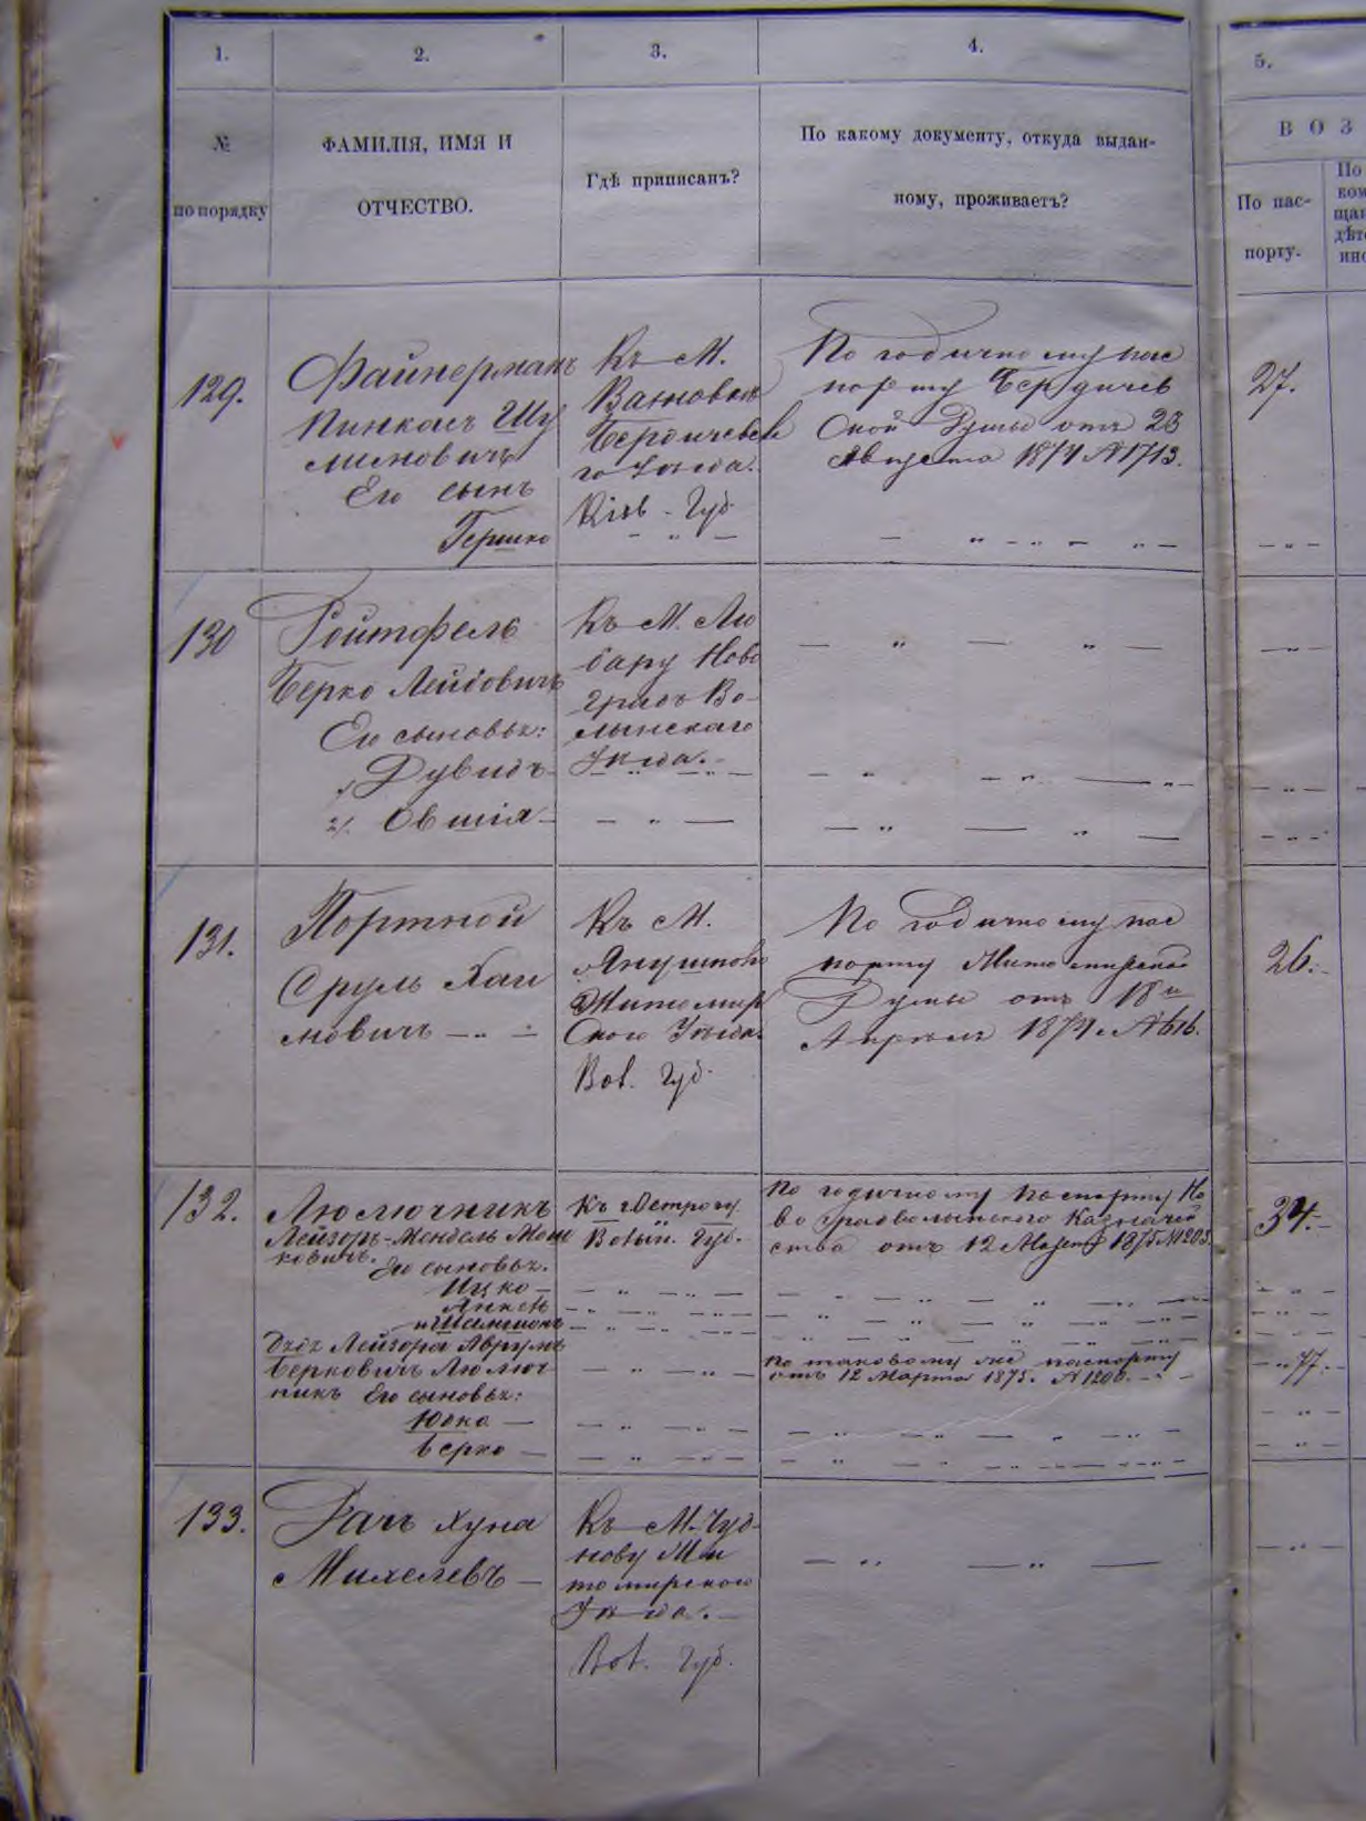 1.
2.
3.
4.
5.
№
по порядку
ФАМИЛІЯ, ИМЯ И
ОТЧЕСТВО.
Гдѣ приписанъ?
По какому документу, откуда выдан-
ному, проживаетъ?
ВОЗ
По пас-
порту.
По
ком
щан
дѣт
ино
129.
Файнерманъ
Пинкасъ Шу
лимовичъ
Его сынъ
Гершко
Къ М.
Вахновка
Бердичевска
го Уѣзда.
Кіев. Губ.
По годичному пас
порту Бердичев
ской Думы отъ 23
Августа 1874 № 1713.
27.
130
Ройтфель
Берко Лейбовичъ
Его сыновья:
1. Рувидъ
2/. Овшія
Къ М. Лю
бару Ново
градъ Во-
лынскаго
Уѣзда.
131.
Портной
Сруль Хаи
мовичъ
Къ М.
Янушполю
Житомир
скаго Уѣзда.
Вол. Губ.
По годичному пас
порту Житомирской
Думы отъ 18го
Апрѣля 1874 № 616.
26.
132.
Люлючникъ
Лейзоръ-Мендель Мош
ковичъ. Его сыновья.
Ицко
Анкель
и Шамшонъ
Дядя Лейзора Аврумъ
Берковичъ Люлюч
никъ Его сыновья:
Юдка
Берко
Къ г. Острогу
Волын. Губ.
По годичному паспорту Но
воградволынскаго Казначей
ства отъ 12 Марта 1875 № 1203.
По таковому же паспорту
отъ 12 Марта 1875. № 1200.
34.
77.
133.
Рачъ Хуна
Михелевъ
Къ М. Чуд-
нову Жи
томирскаго
Уѣзда.
Вол. Губ.